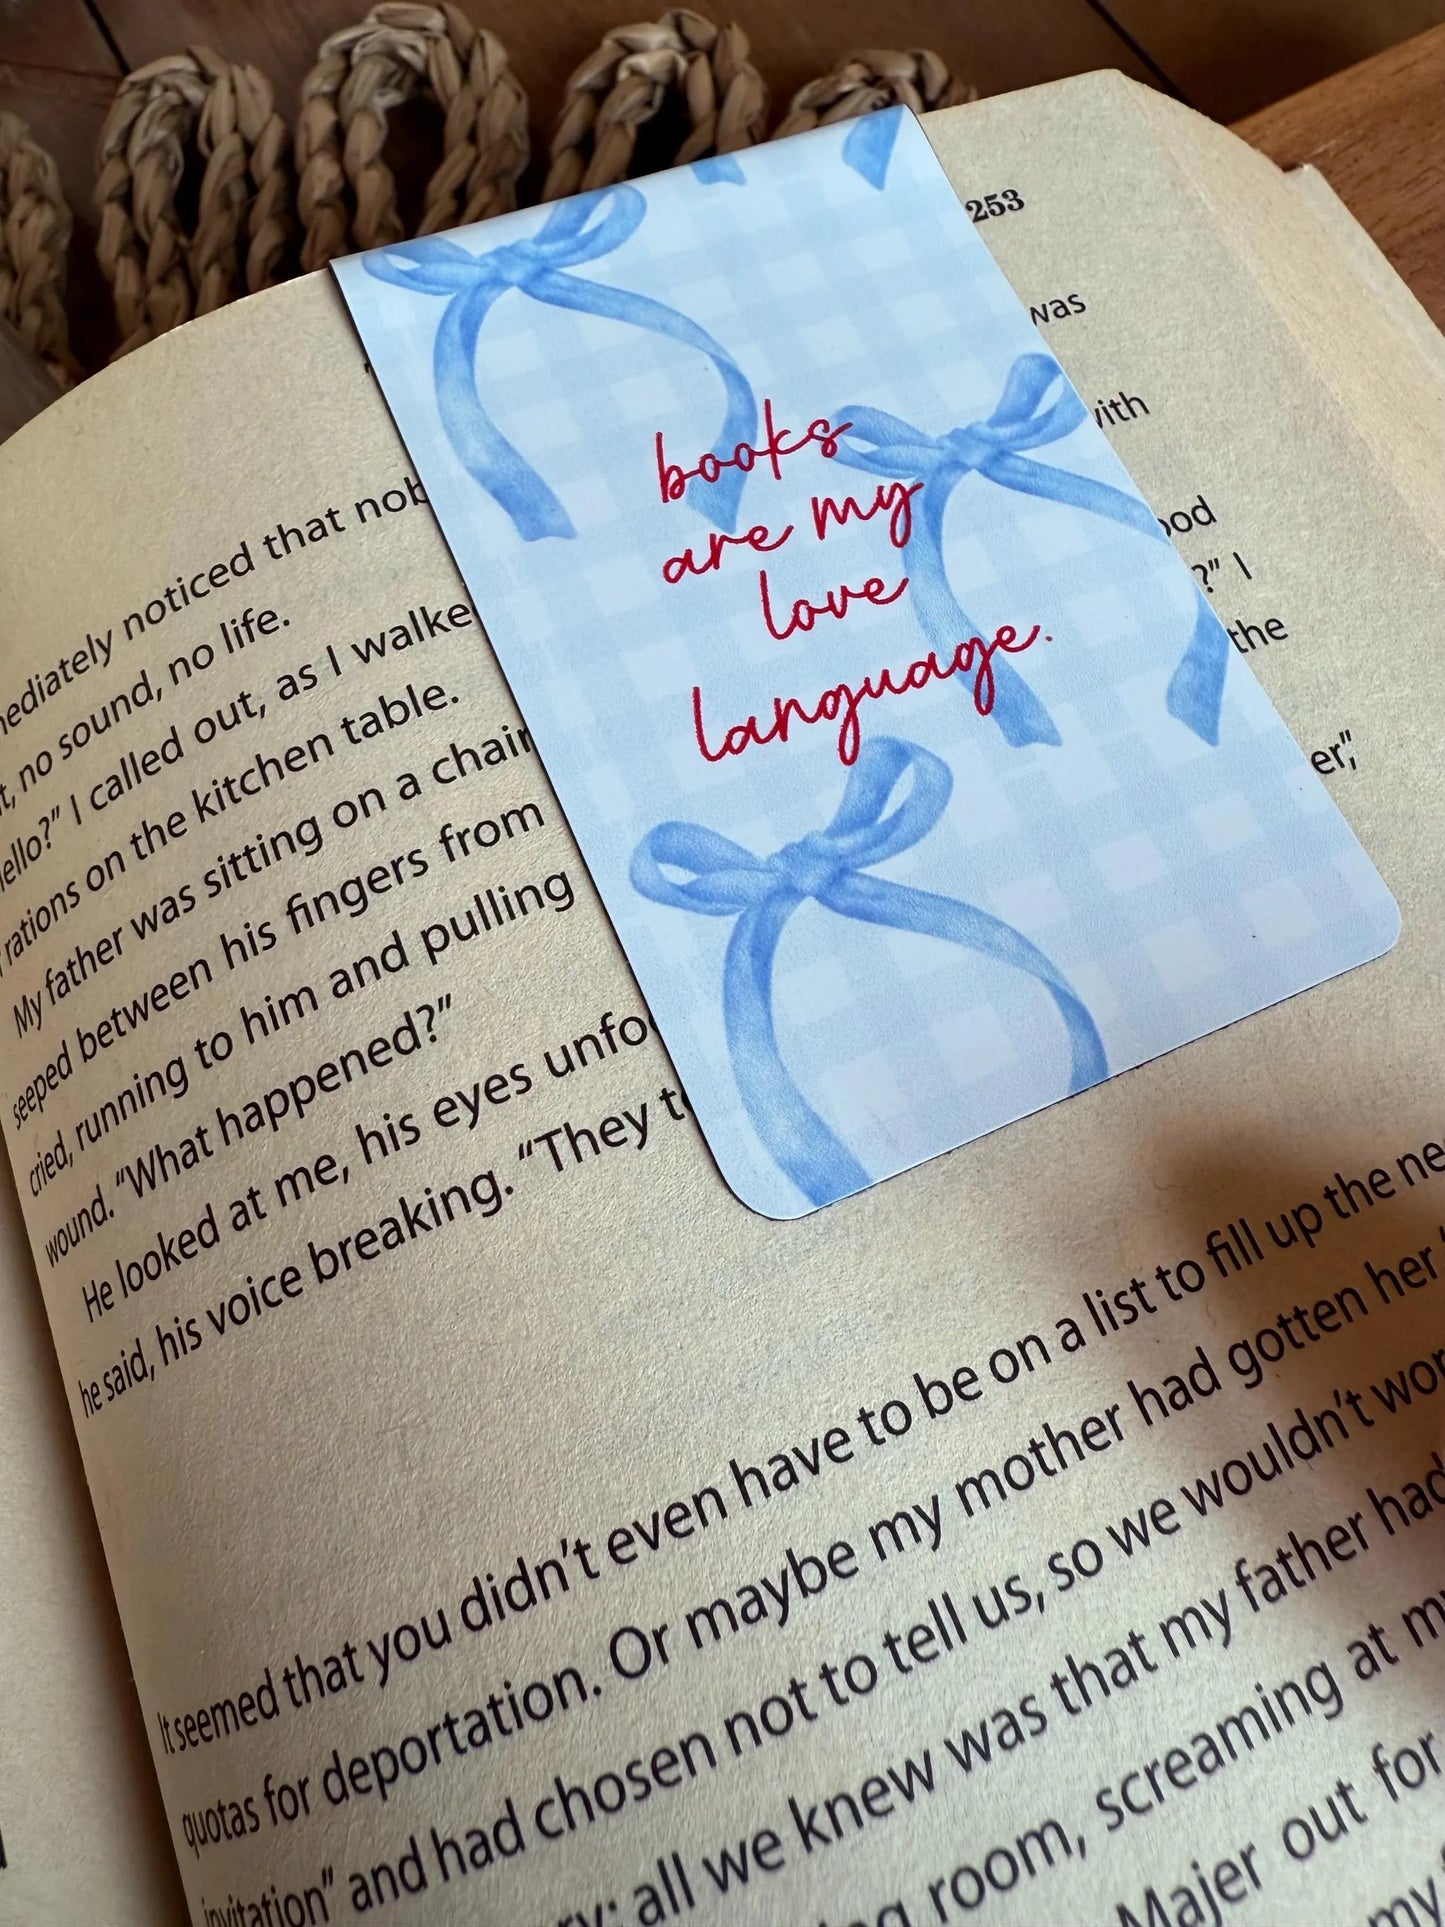 253
was
with
books
are my
love
language.
noticed that
no sound, no life.
I called out, as I
rations on the kitchen table.
My father was sitting on a chair
seeped between his fingers from
the
cried, running to him and pulling
wound. “What happened?”
He looked at me, his eyes
he said, his voice breaking. “They
It seemed that you didn’t even have to be on a list to fill up the
quotas for deportation. Or maybe my mother had gotten her
invitation” and had chosen not to tell us, so we wouldn’t
all we knew was that my father had
room, screaming at
Majer out for
my